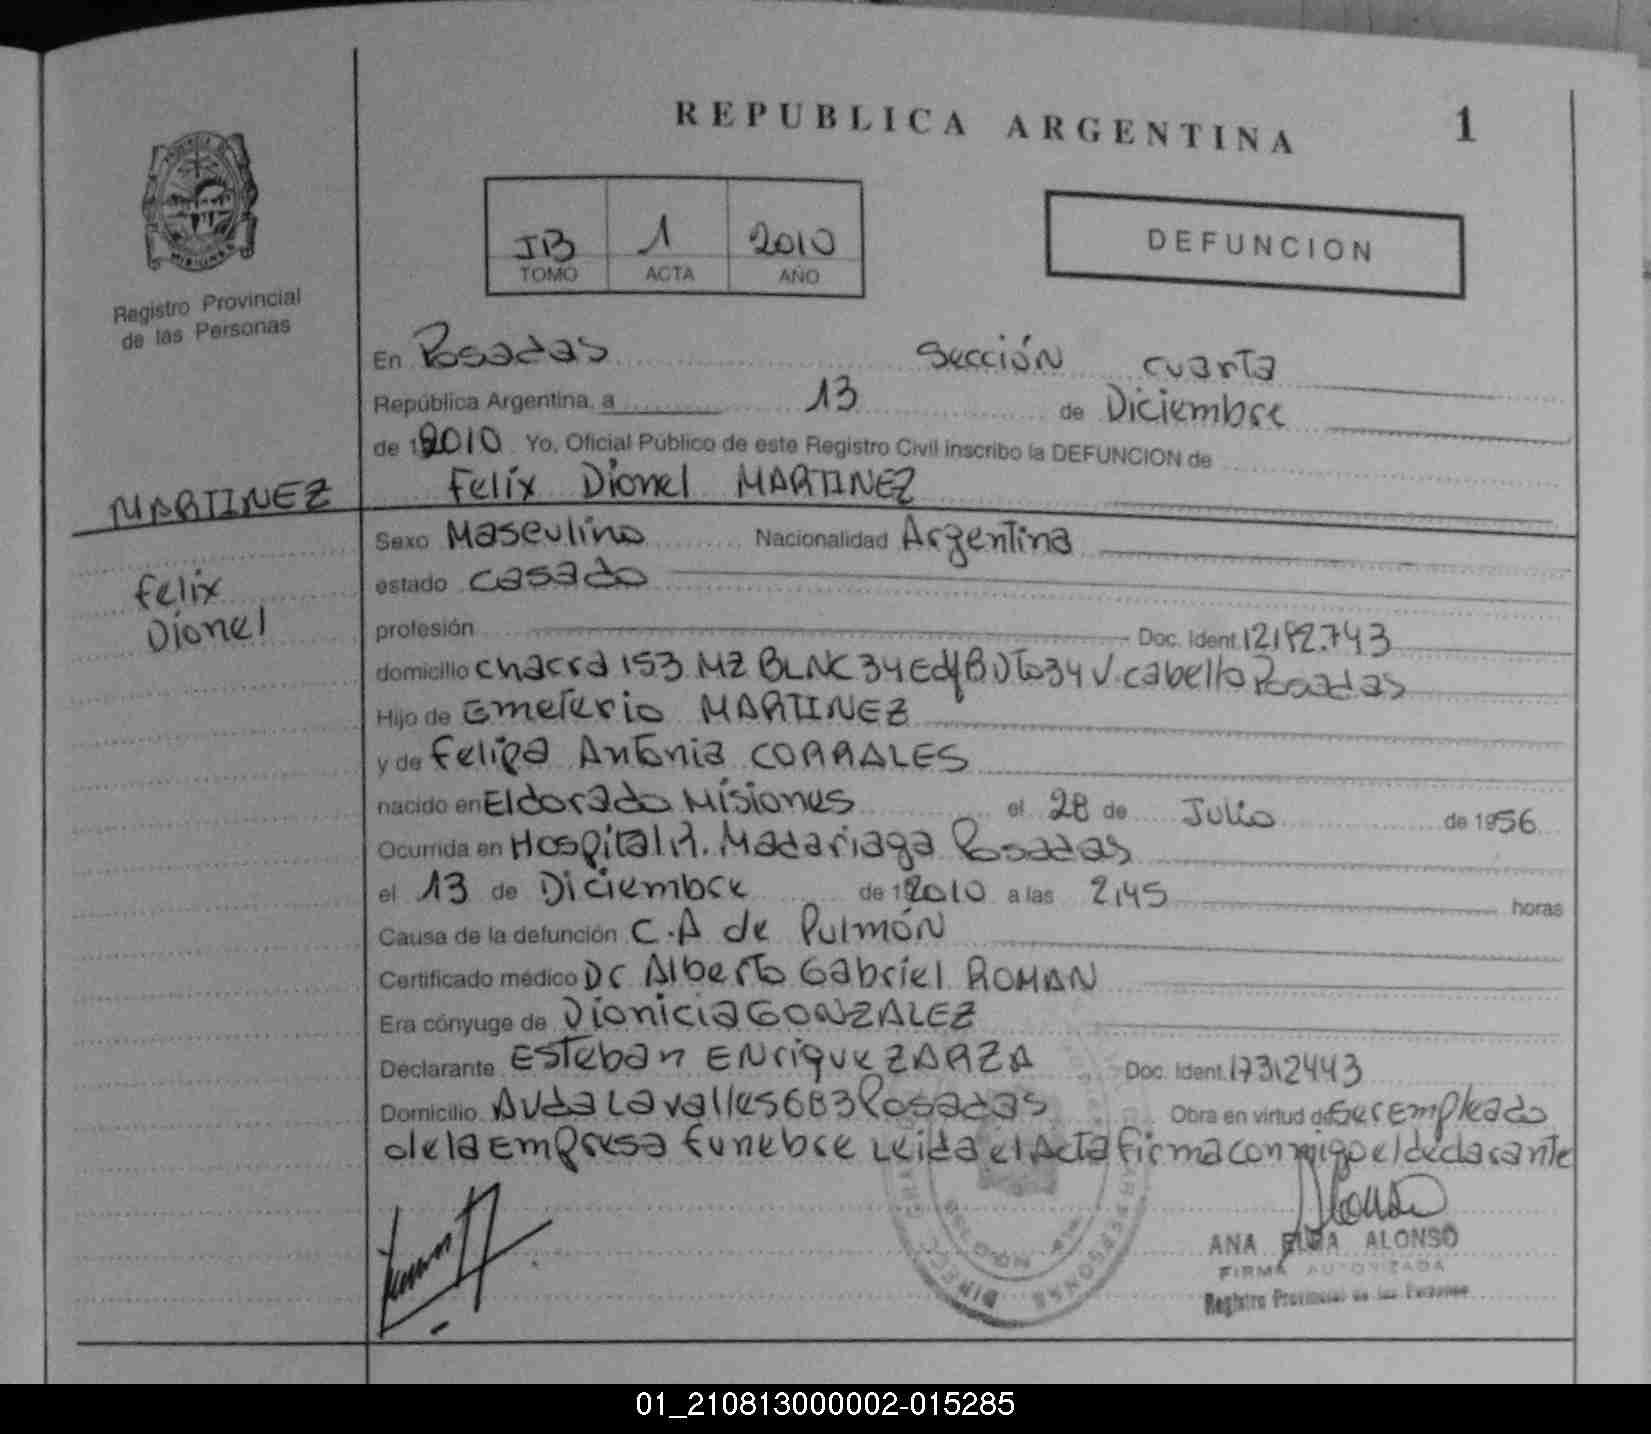 REPUBLICA ARGENTINA
1
Registro Provincial
de las Personas
1 2010
TOMO ACTA AÑO
DEFUNCION
En Posadas Sección cuarta
República Argentina, a 13 de Diciembre
de 2010 Yo, Oficial Público de este Registro Civil inscribo la DEFUNCION de
Felix Dionel MARTINEZ
MARTINEZ
Felix
Dionel
Sexo Masculino Nacionalidad Argentina
estado casado
profesión Doc. Ident. 12192.743
domicilio chacra 153 MZ BLNC 34 Edf B Dto 34 V. cabello Posadas
Hijo de Emeterio MARTINEZ
y de Felipa Antonia CORRALES
nacido en Eldorado Misiones el 28 de Julio de 1956
Ocurrida en Hospital R. Madariaga Posadas
el 13 de Diciembre de 2010 a las 2,45 horas
Causa de la defunción C.A de Pulmón
Certificado médico Dr Alberto Gabriel ROMAN
Era cónyuge de Dionicia GONZALEZ
Declarante Esteban Enrique ZARZA Doc. Ident. 17312443
Domicilio Avda Lavalle 5683 Posadas Obra en virtud de ser empleado
de la Empresa funebre Leida el Acta firma conmigo el declarante
ANA ALONSO
FIRMA AUTORIZADA
Registro Provincial de las Personas
01_210813000002-015285